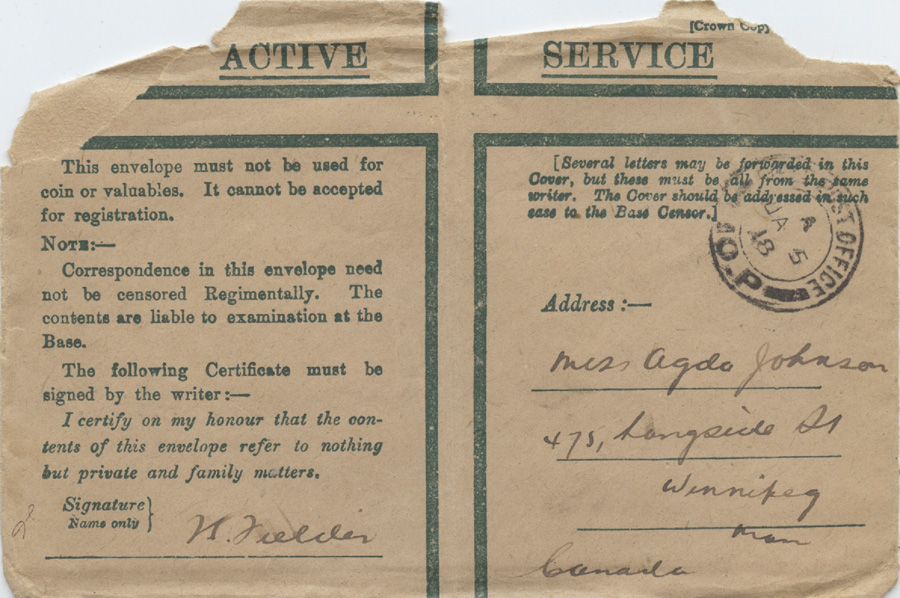 [Crown Cop
ACTIVE SERVICE
This envelope must not be used for
coin or valuables. It cannot be accepted
for registration.
NOTE:—
Correspondence in this envelope need
not be censored Regimentally. The
contents are liable to examination at the
Base.
The following Certificate must be
signed by the writer:—
I certify on my honour that the con-
tents of this envelope refer to nothing
but private and family matters.
Signature
Name only
H. Fielder
[Several letters may be forwarded in this
Cover, but these must be all from the same
writer. The Cover should be addressed in such
case to the Base Censor.]
POST OFFICE
A
JA 5
18
Address:—
Miss Agda Johnson
475, Langside St
Winnipeg
Man
Canada